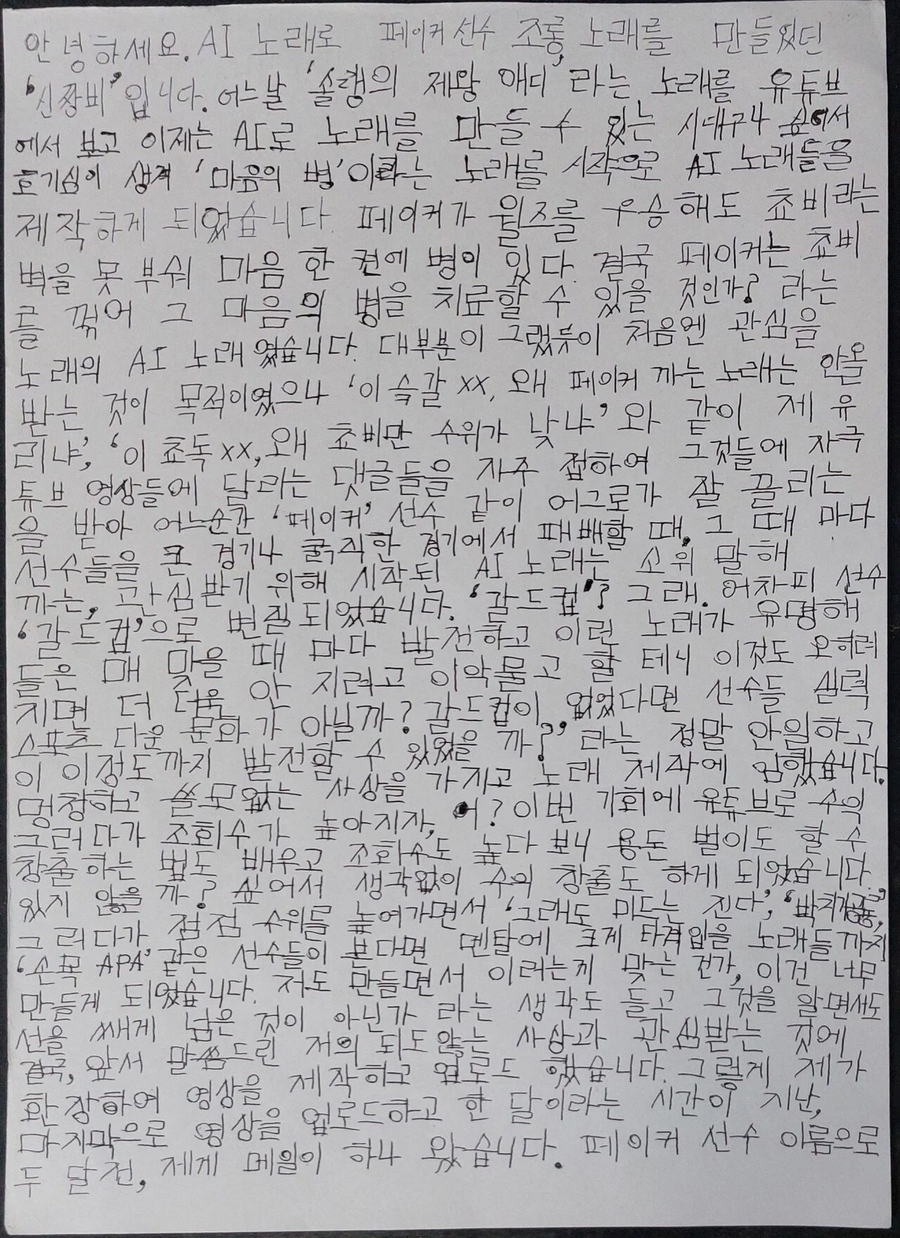 안녕하세요. AI 노래로 페이커 선수 조롱 노래를 만들었던
'신짱비'입니다. 어느날 '솔랭의 제왕 애디'라는 노래를 유튜브
에서 보고 이제는 AI로 노래를 만들 수 있는 시대구나 싶어서
호기심이 생겨 '마음의 병'이라는 노래를 시작으로 AI 노래들을
제작하게 되었습니다. 페이커가 월즈를 우승해도 쵸비라는
벽을 못 부숴 마음 한 켠에 병이 있다. 결국 페이커는 쵸비
를 꺾어 그 마음의 병을 치료할 수 있을 것인가? 라는
노래의 AI 노래였습니다. 대부분이 그랬듯이 처음엔 관심을
받는 것이 목적이였으나 '이 슥갈xx, 왜 페이커 까는 노래는 안올
리냐', '이 쵸독xx, 왜 쵸비만 수위가 낮냐' 와 같이 제 유
튜브 영상들에 달리는 댓글들을 자주 접하여 그것들에 자극
을 받아 어느순간 '페이커' 선수 같이 어그로가 잘 끌리는
선수들을 큰 경기나 굵직한 경기에서 패배할 때, 그 때 마다
까는, 관심받기 위해 시작된 AI 노래는 소위 말해
'갈드컵'으로 변질되었습니다. '갈드컵'? 그래. 어차피 선수
들은 매 맞을 때 마다 발전하고 이런 노래가 유명해
지면 더 더욱 안 지려고 이악물고 할 테니 이것도 오히려
스포츠 다운 문화가 아닐까? 갈드컵이 없었다면 선수들 실력
이 이정도까지 발전할 수 있었을 까?' 라는 정말 안일하고
멍청하고 쓸모없는 사상을 가지고 노래 제작에 임했습니다.
그러다가 조회수가 높아지자, 어? 이번 기회에 유튜브로 수익
창출하는 법도 배우고 조회수도 높다 보니 용돈 벌이도 할 수
있지 않을 까? 싶어서 생각없이 수익 창출도 하게 되었습니다.
그러다가 점점 수위를 높여가면서 '그래도 미드는 진다',
'손목 APA' 같은 선수들이 본다면 멘탈에 크게 타격입을 노래들까지
만들게 되었습니다. 저도 만들면서 이러는게 맞는 건가, 이건 너무
선을 쎄게 넘은 것이 아닌가 라는 생각도 들고 그것을 알면서도
결국, 앞서 말씀드린 저의 되도않는 사상과 관심받는 것에
환장하여 영상을 제작하고 업로드 했습니다. 그렇게 제가
마지막으로 영상을 업로드하고 한 달이라는 시간이 지난,
두 달 전, 제게 메일이 하나 왔습니다. 페이커 선수 이름으로